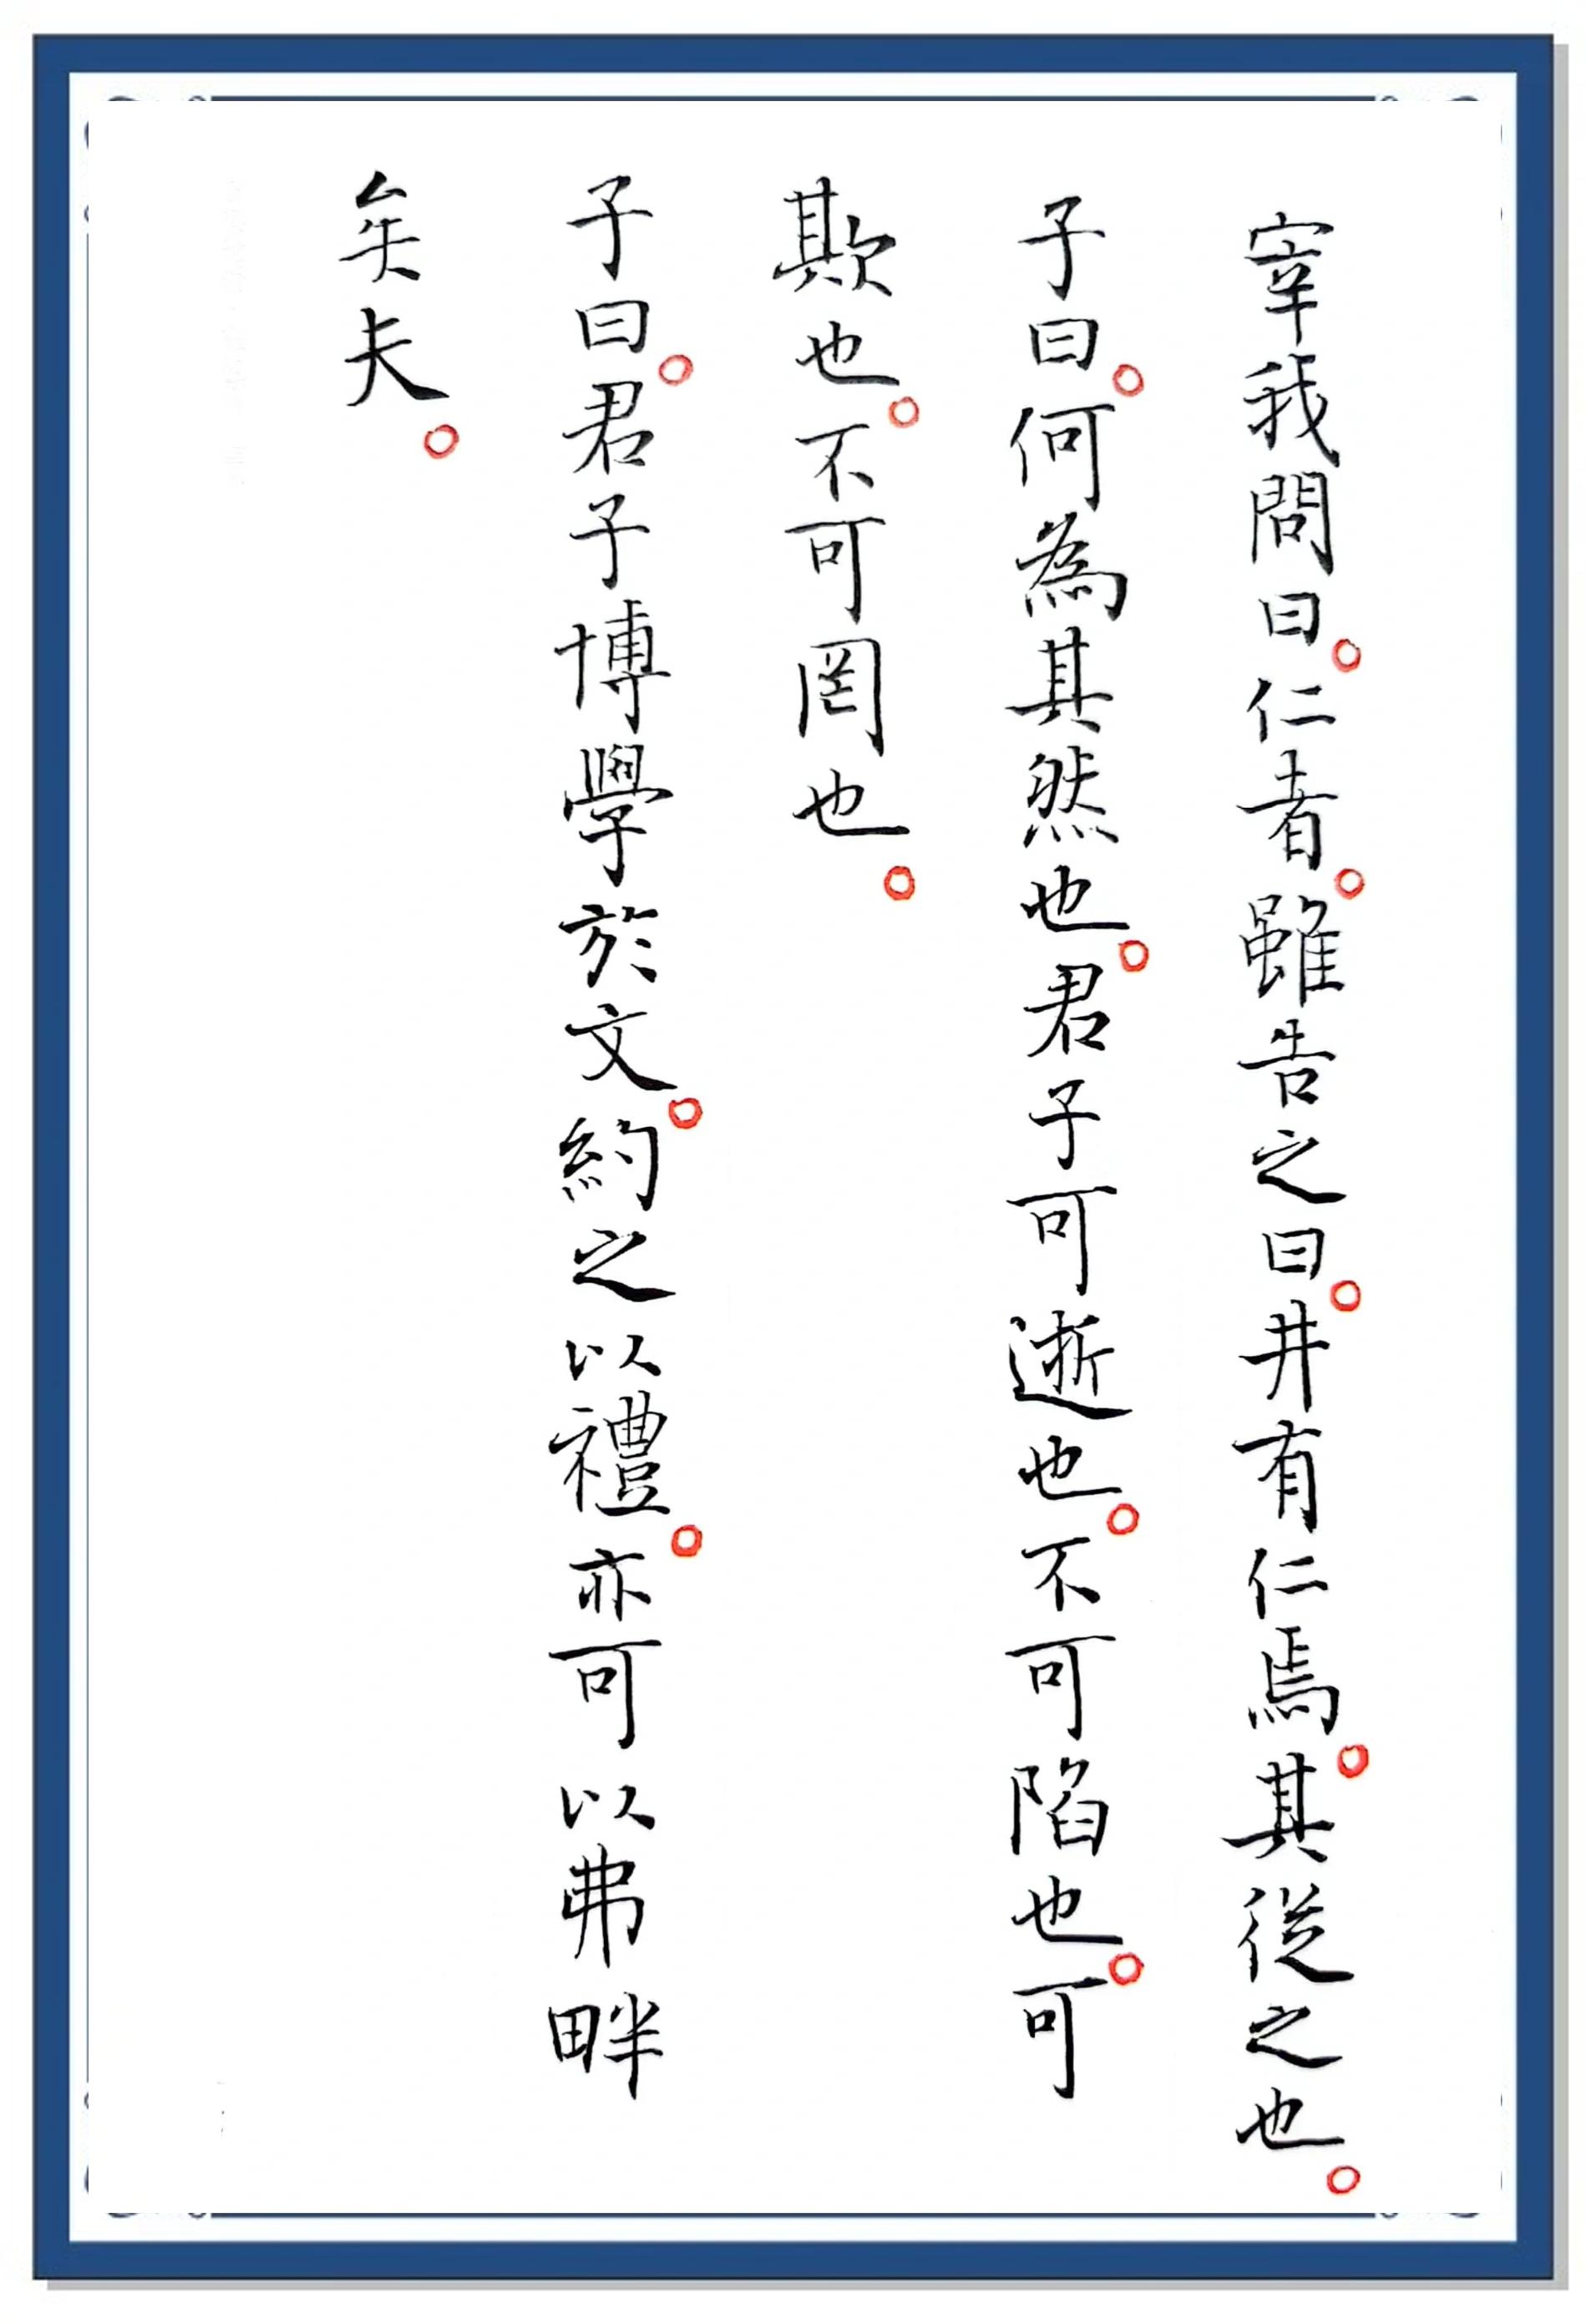 宰我問曰。仁者。雖告之曰。井有仁焉。其從之也。
子曰。何為其然也。君子可逝也。不可陷也。可
欺也。不可罔也。
子曰。君子博學於文。約之以禮。亦可以弗畔
矣夫。